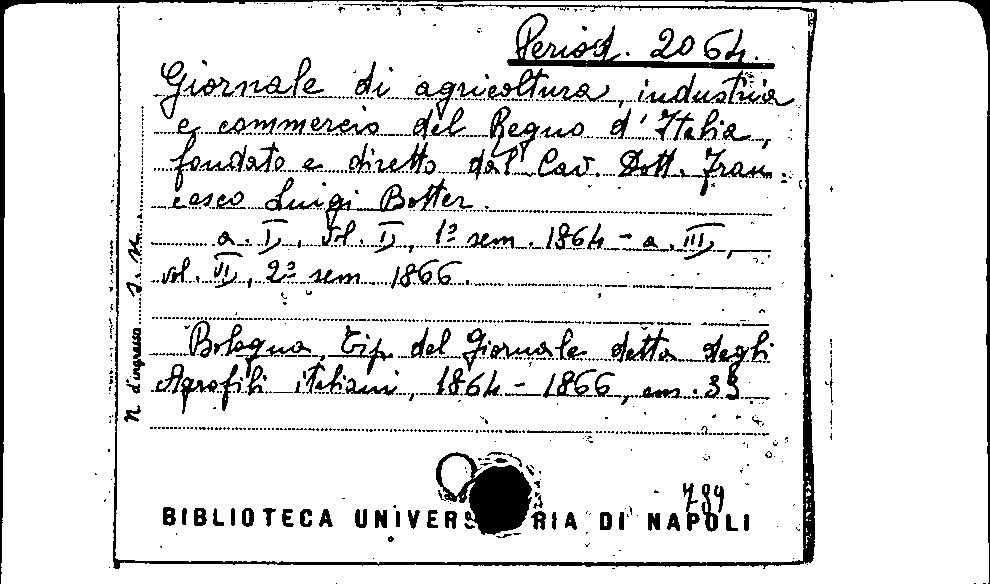 Period. 2064.
Giornale di agricoltura, industria
e commercio del Regno d'Italia,
fondato e diretto dal Cav. Dott. Fran=
cesco Luigi Botter.
a. I, vol. I, 1º sem. 1864 - a. III,
vol. VI, 2º sem 1866.
Bologna, Tip. del Giornale detta degli
Agrofili italiani, 1864 - 1866, cm. 23
N d'ingresso s. n.
789
BIBLIOTECA UNIVERS RIA DI NAPOLI